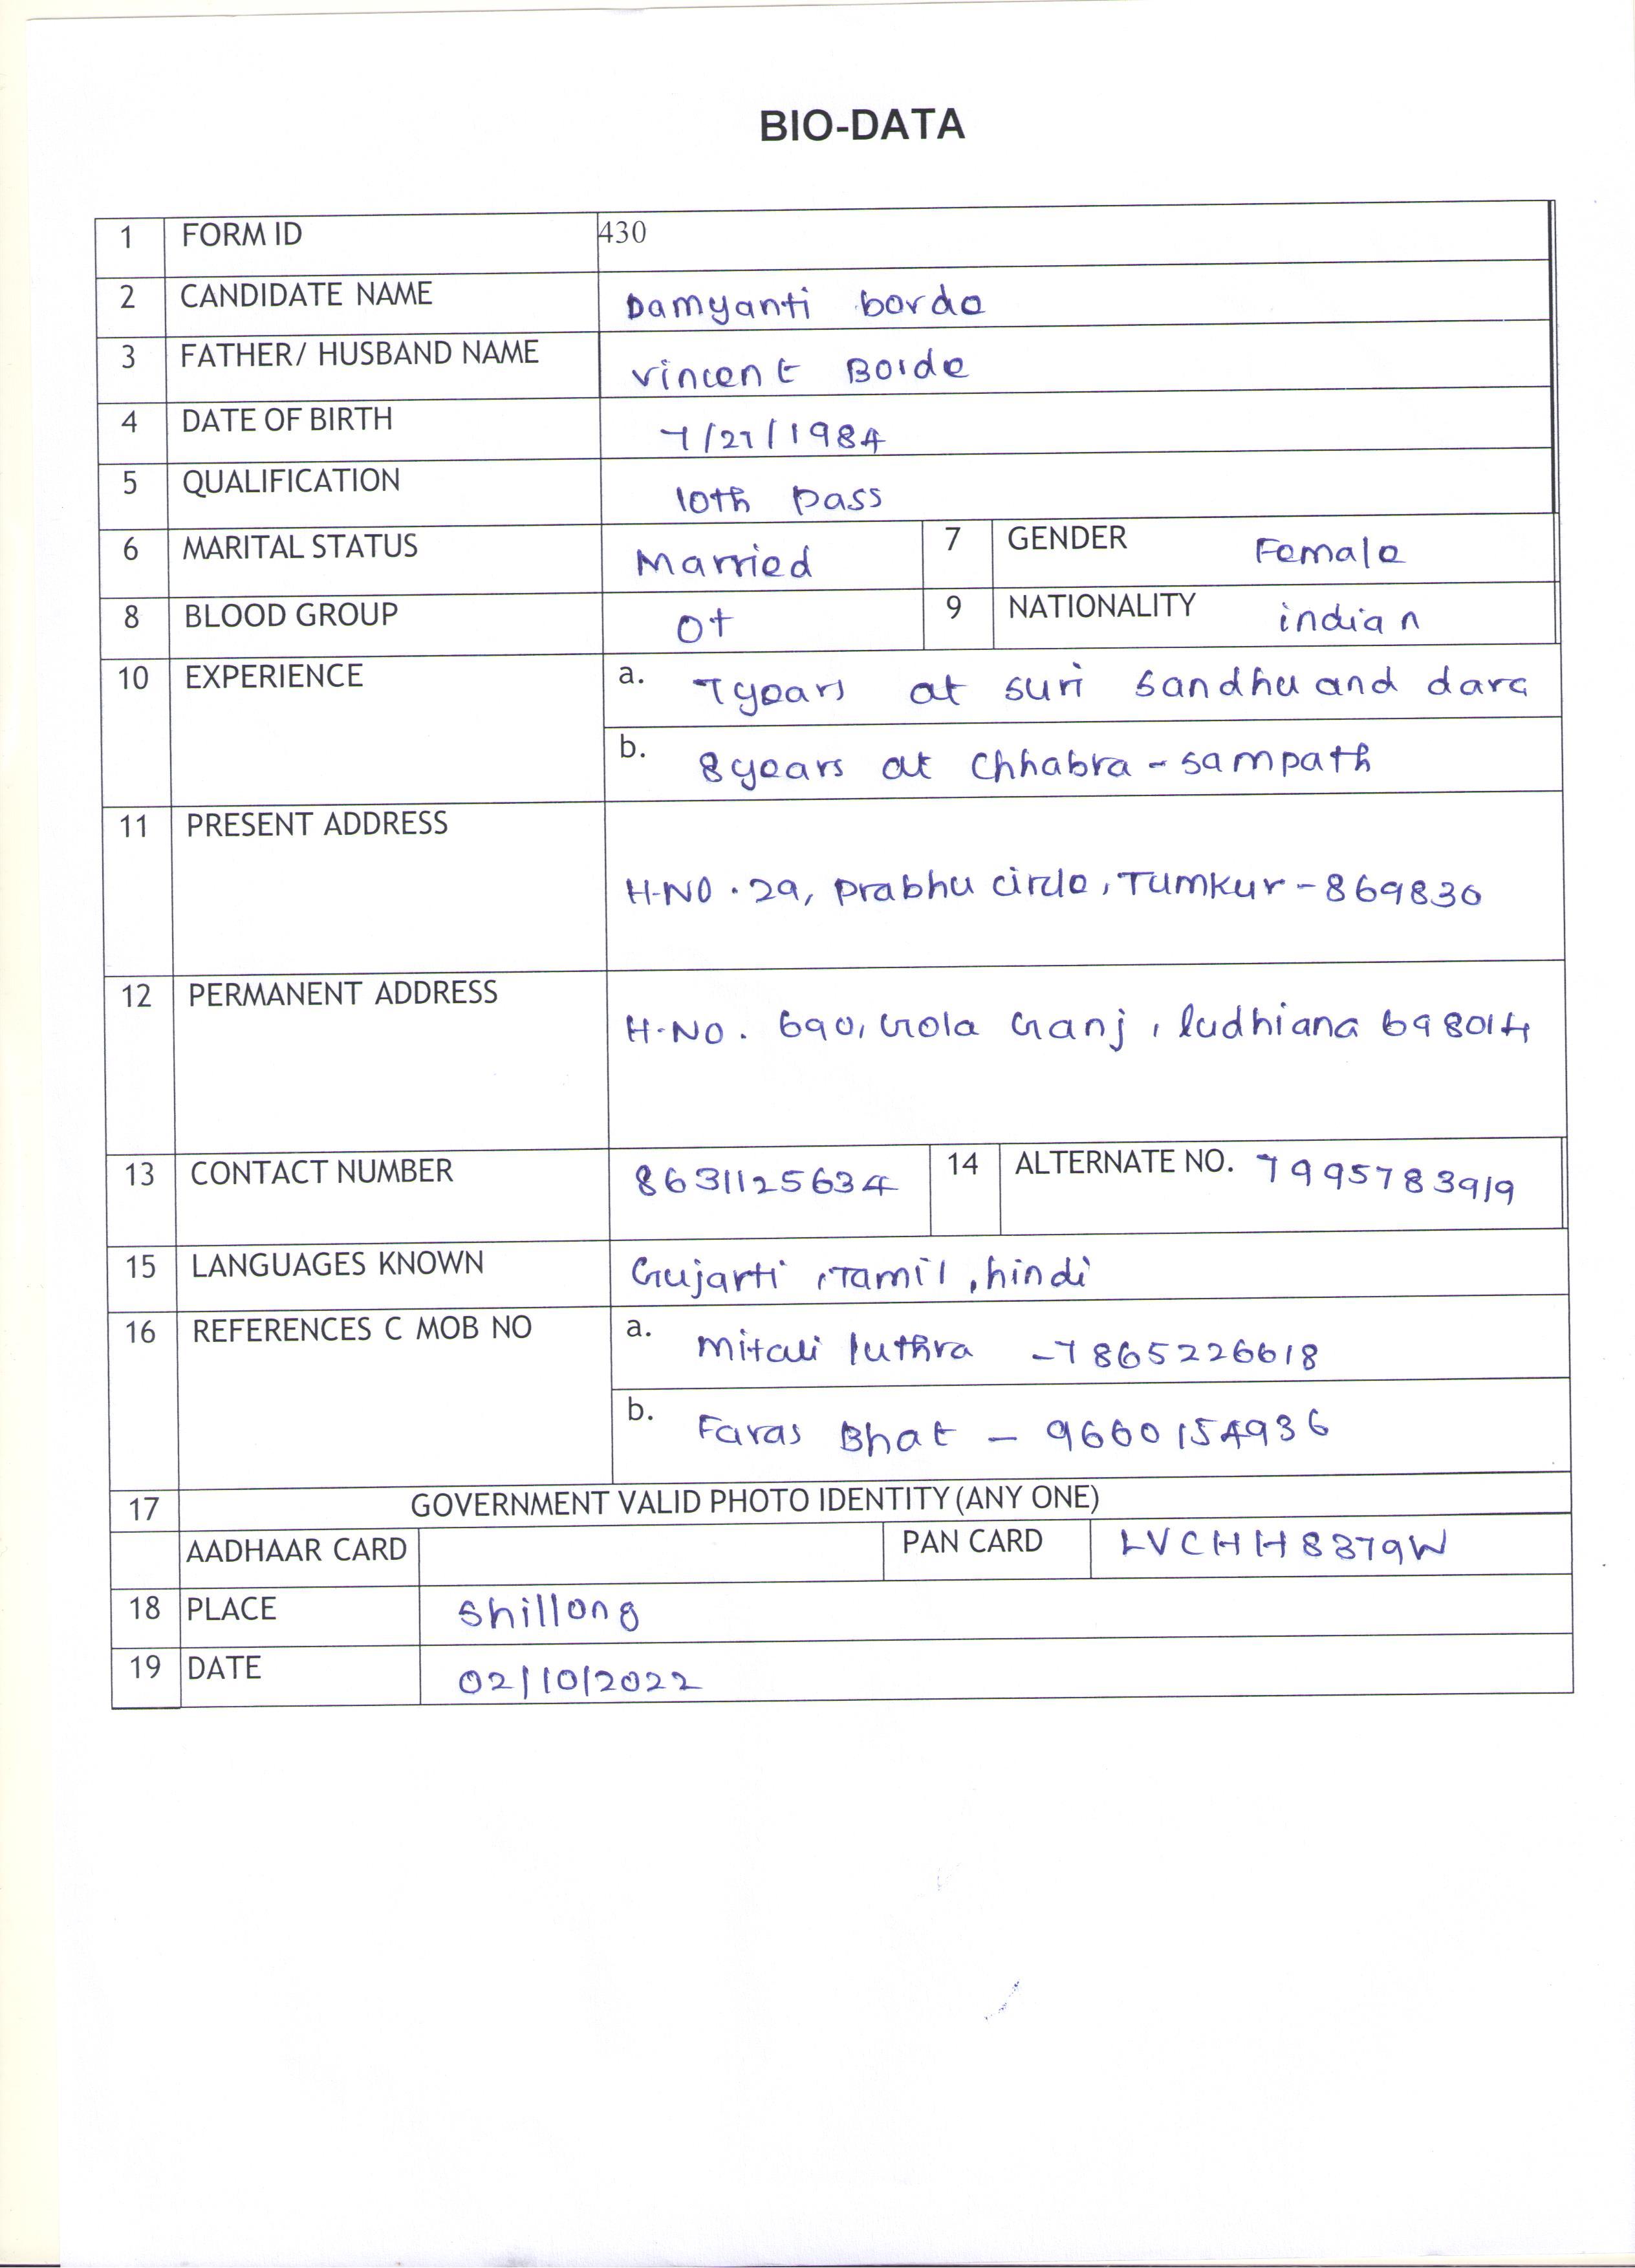 BIO-DATA
1 FORM ID 430
2 CANDIDATE NAME Damyanti borde
3 FATHER/ HUSBAND NAME vincent Borde
4 DATE OF BIRTH 7/27/1984
5 QUALIFICATION 10th pass
6 MARITAL STATUS Married 7 GENDER Female
8 BLOOD GROUP O+ 9 NATIONALITY indian
10 EXPERIENCE a. 7 years at suri sandhu and dara
b. 8 years at chhabra - sampath
11 PRESENT ADDRESS
H-NO . 29, prabhu circle, Tumkur - 869830
12 PERMANENT ADDRESS
H-NO. 690, Gola Ganj, ludhiana 698014
13 CONTACT NUMBER 8631125634 14 ALTERNATE NO. 7995783919
15 LANGUAGES KNOWN Gujarti, Tamil, hindi
16 REFERENCES C MOB NO a. mitali luthra - 7865226618
b. Faras Bhat - 9660154936
17 GOVERNMENT VALID PHOTO IDENTITY (ANY ONE)
AADHAAR CARD PAN CARD LVCHH8379W
18 PLACE shillong
19 DATE 02/10/2022